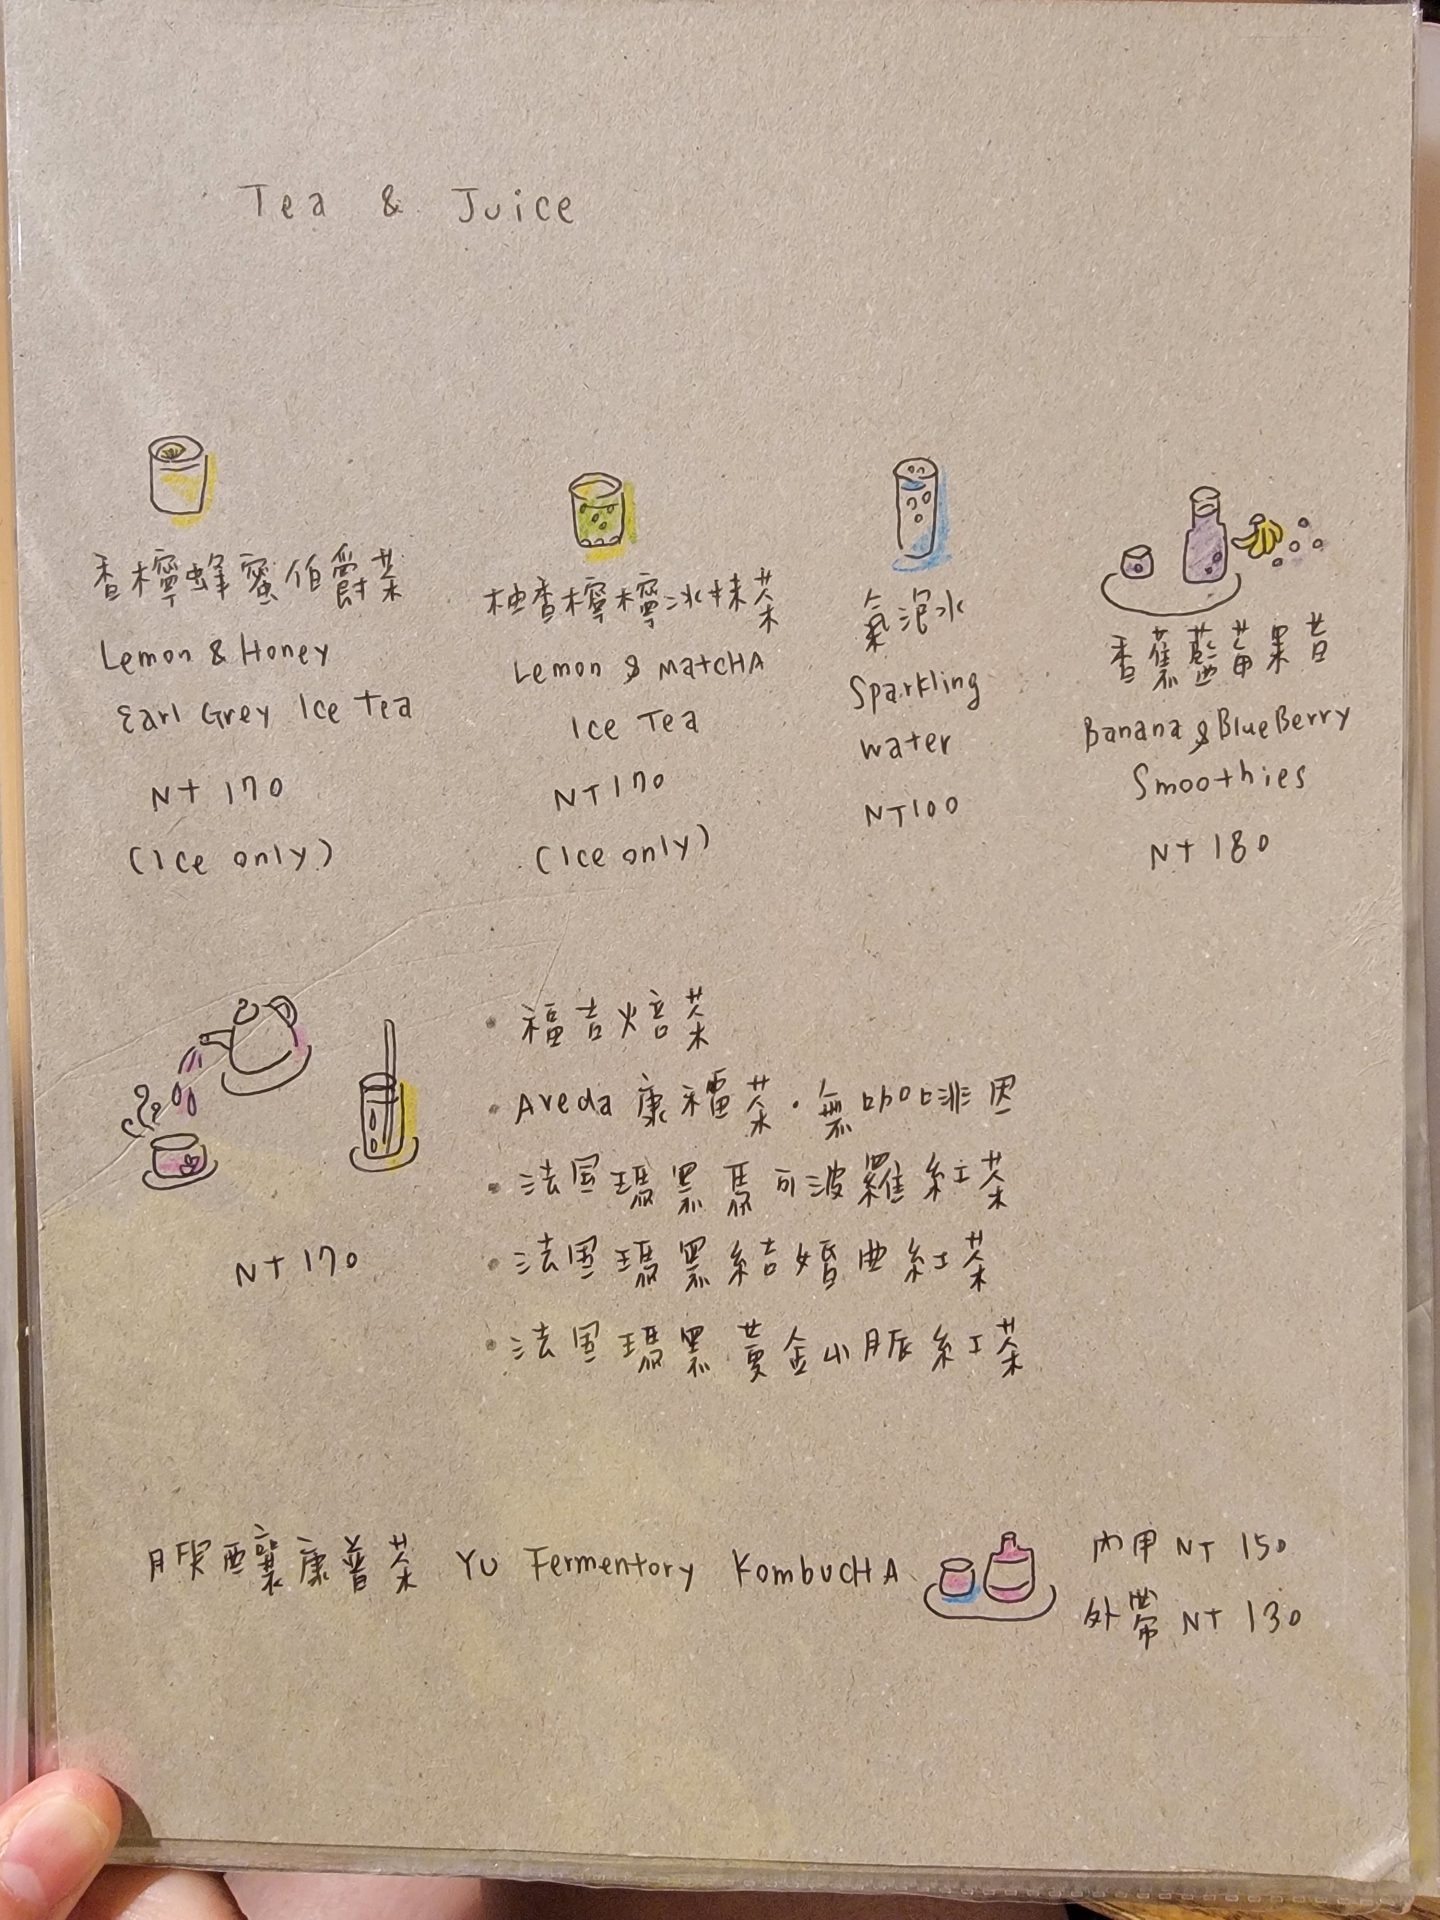 Tea & Juice
香檸蜂蜜伯爵茶
Lemon & Honey
Earl Grey Ice Tea
NT 170
(Ice only)
柚香檸檬冰抹茶
Lemon & MatcHA
Ice Tea
NT 170
(Ice only)
氣泡水
Sparkling
water
NT 100
香蕉藍莓果昔
Banana & BlueBerry
Smoothies
NT 180
NT 170
・福吉焙茶
・Aveda 康福茶・無咖啡因
・法国瑪黑馬可波羅紅茶
・法国瑪黑結婚曲紅茶
・法国瑪黑黃金山脈紅茶
釀康普茶 YU Fermentory KombucHA
內用 NT 150
外帶 NT 130